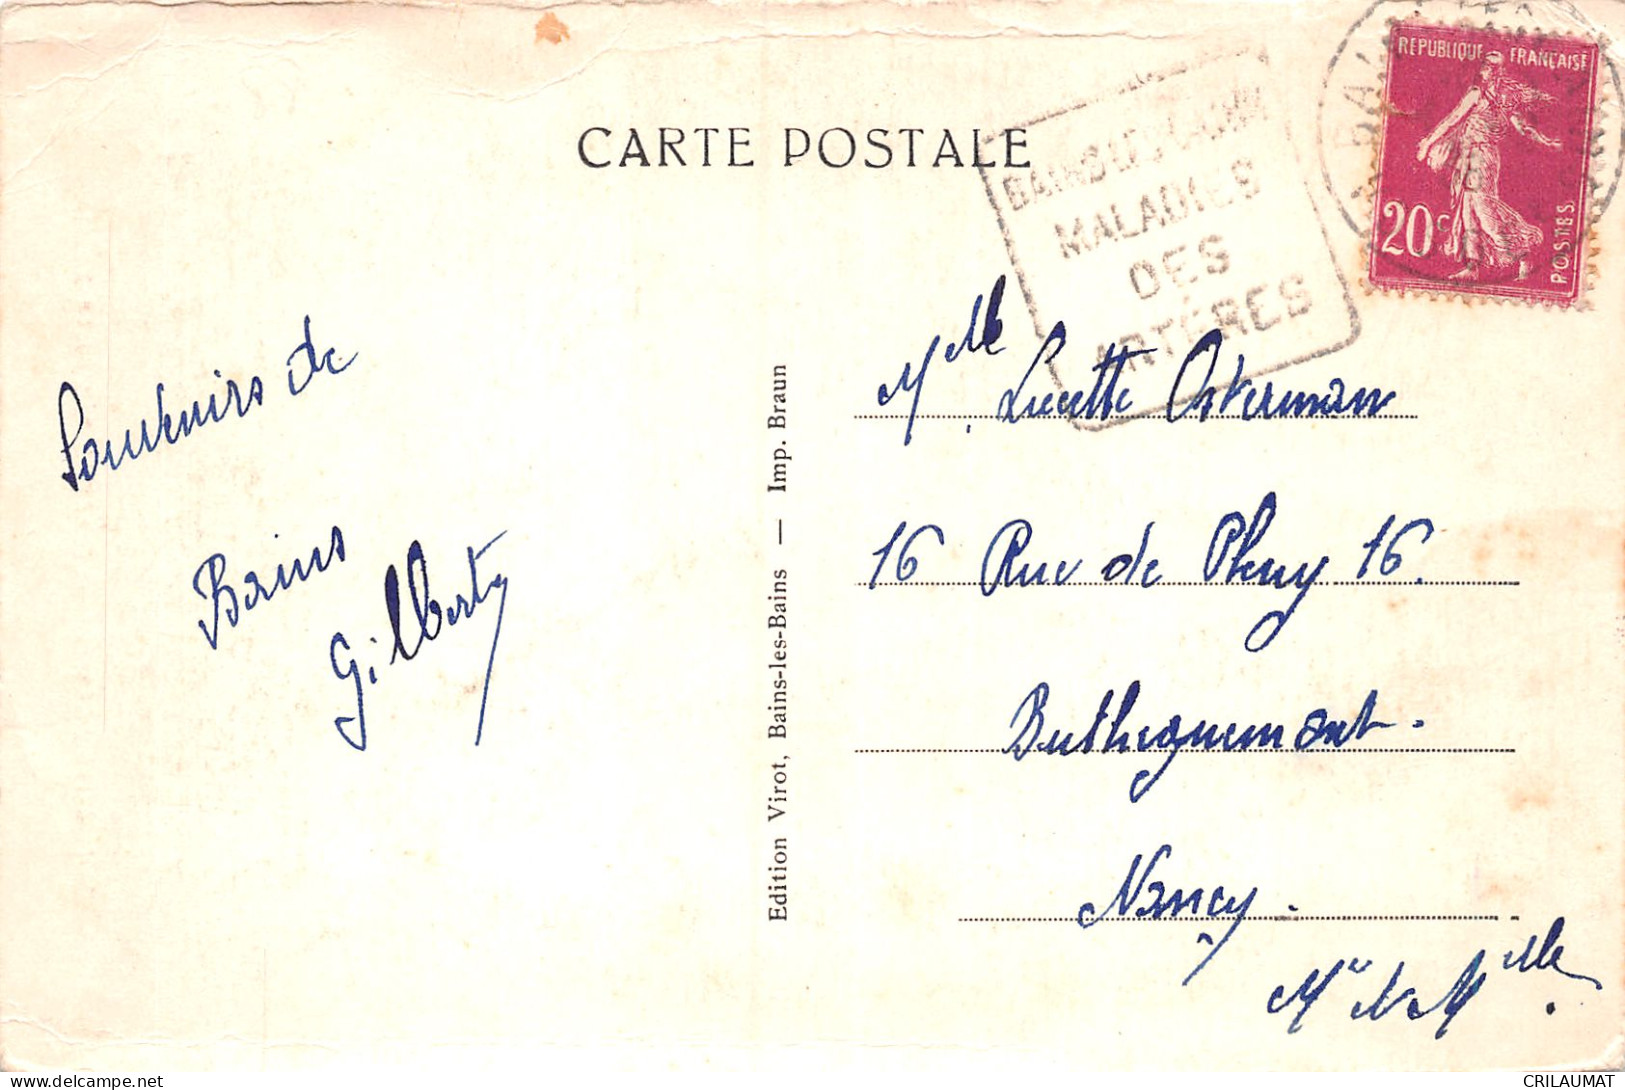 CARTE POSTALE
MALADIES
DES
ARTÈRES
REPUBLIQUE FRANÇAISE
20c
POSTES.
Souvenirs de
Bains
Gilberty
Edition Virot, Bains-les-Bains — Imp. Braun
Mlle Lucette Osterman
16 Rue de 16.
Buthegnemont.
Nancy.
Mr
delcampe.net
CRILAUMAT